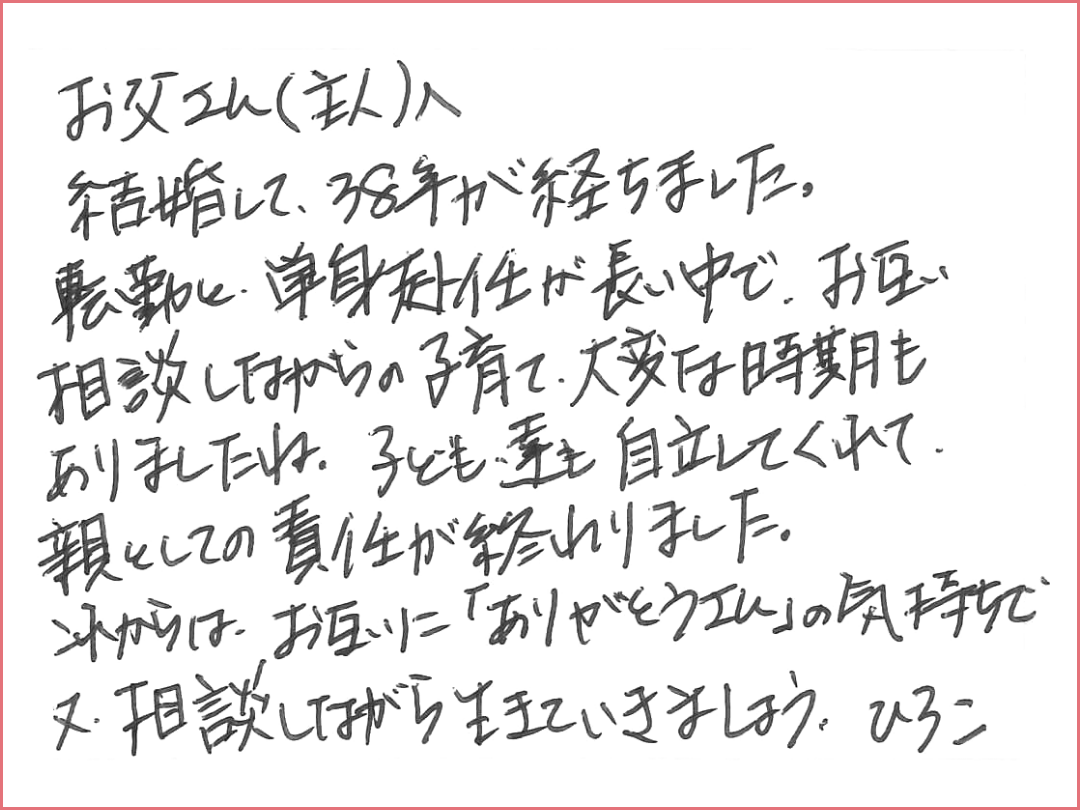 お父さん(主人)へ
結婚して、38年が経ちました。
転勤と、単身赴任が長い中で、お互い
相談しながらの子育て、大変な時期も
ありましたね。子ども達も自立してくれて、
親としての責任が終わりました。
これからは、お互いに「ありがとうさん」の気持ちで
又、相談しながら生きていきましょう。ひろこ